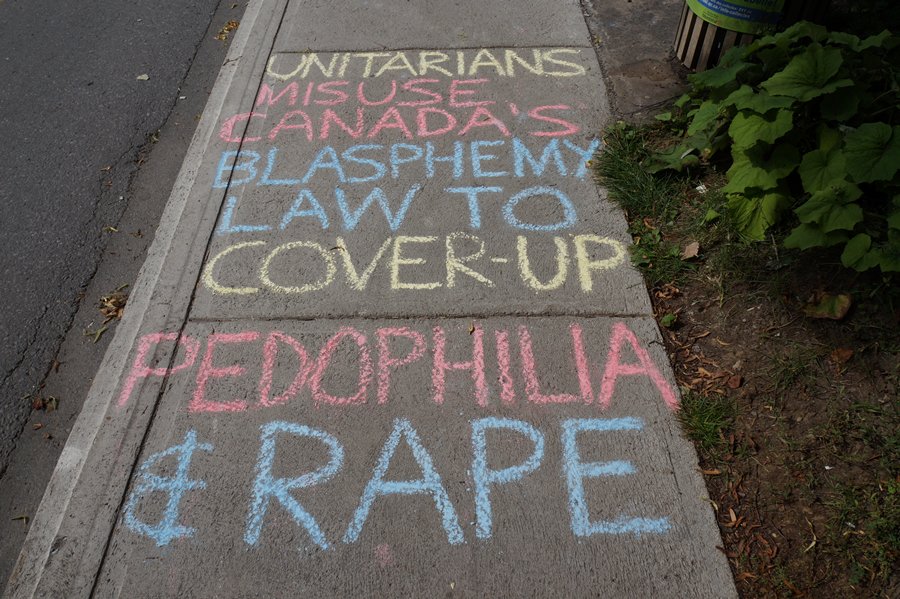 UNITARIANS
MISUSE
CANADA'S
BLASPHEMY
LAW TO
COVER-UP
PEDOPHILIA
& RAPE